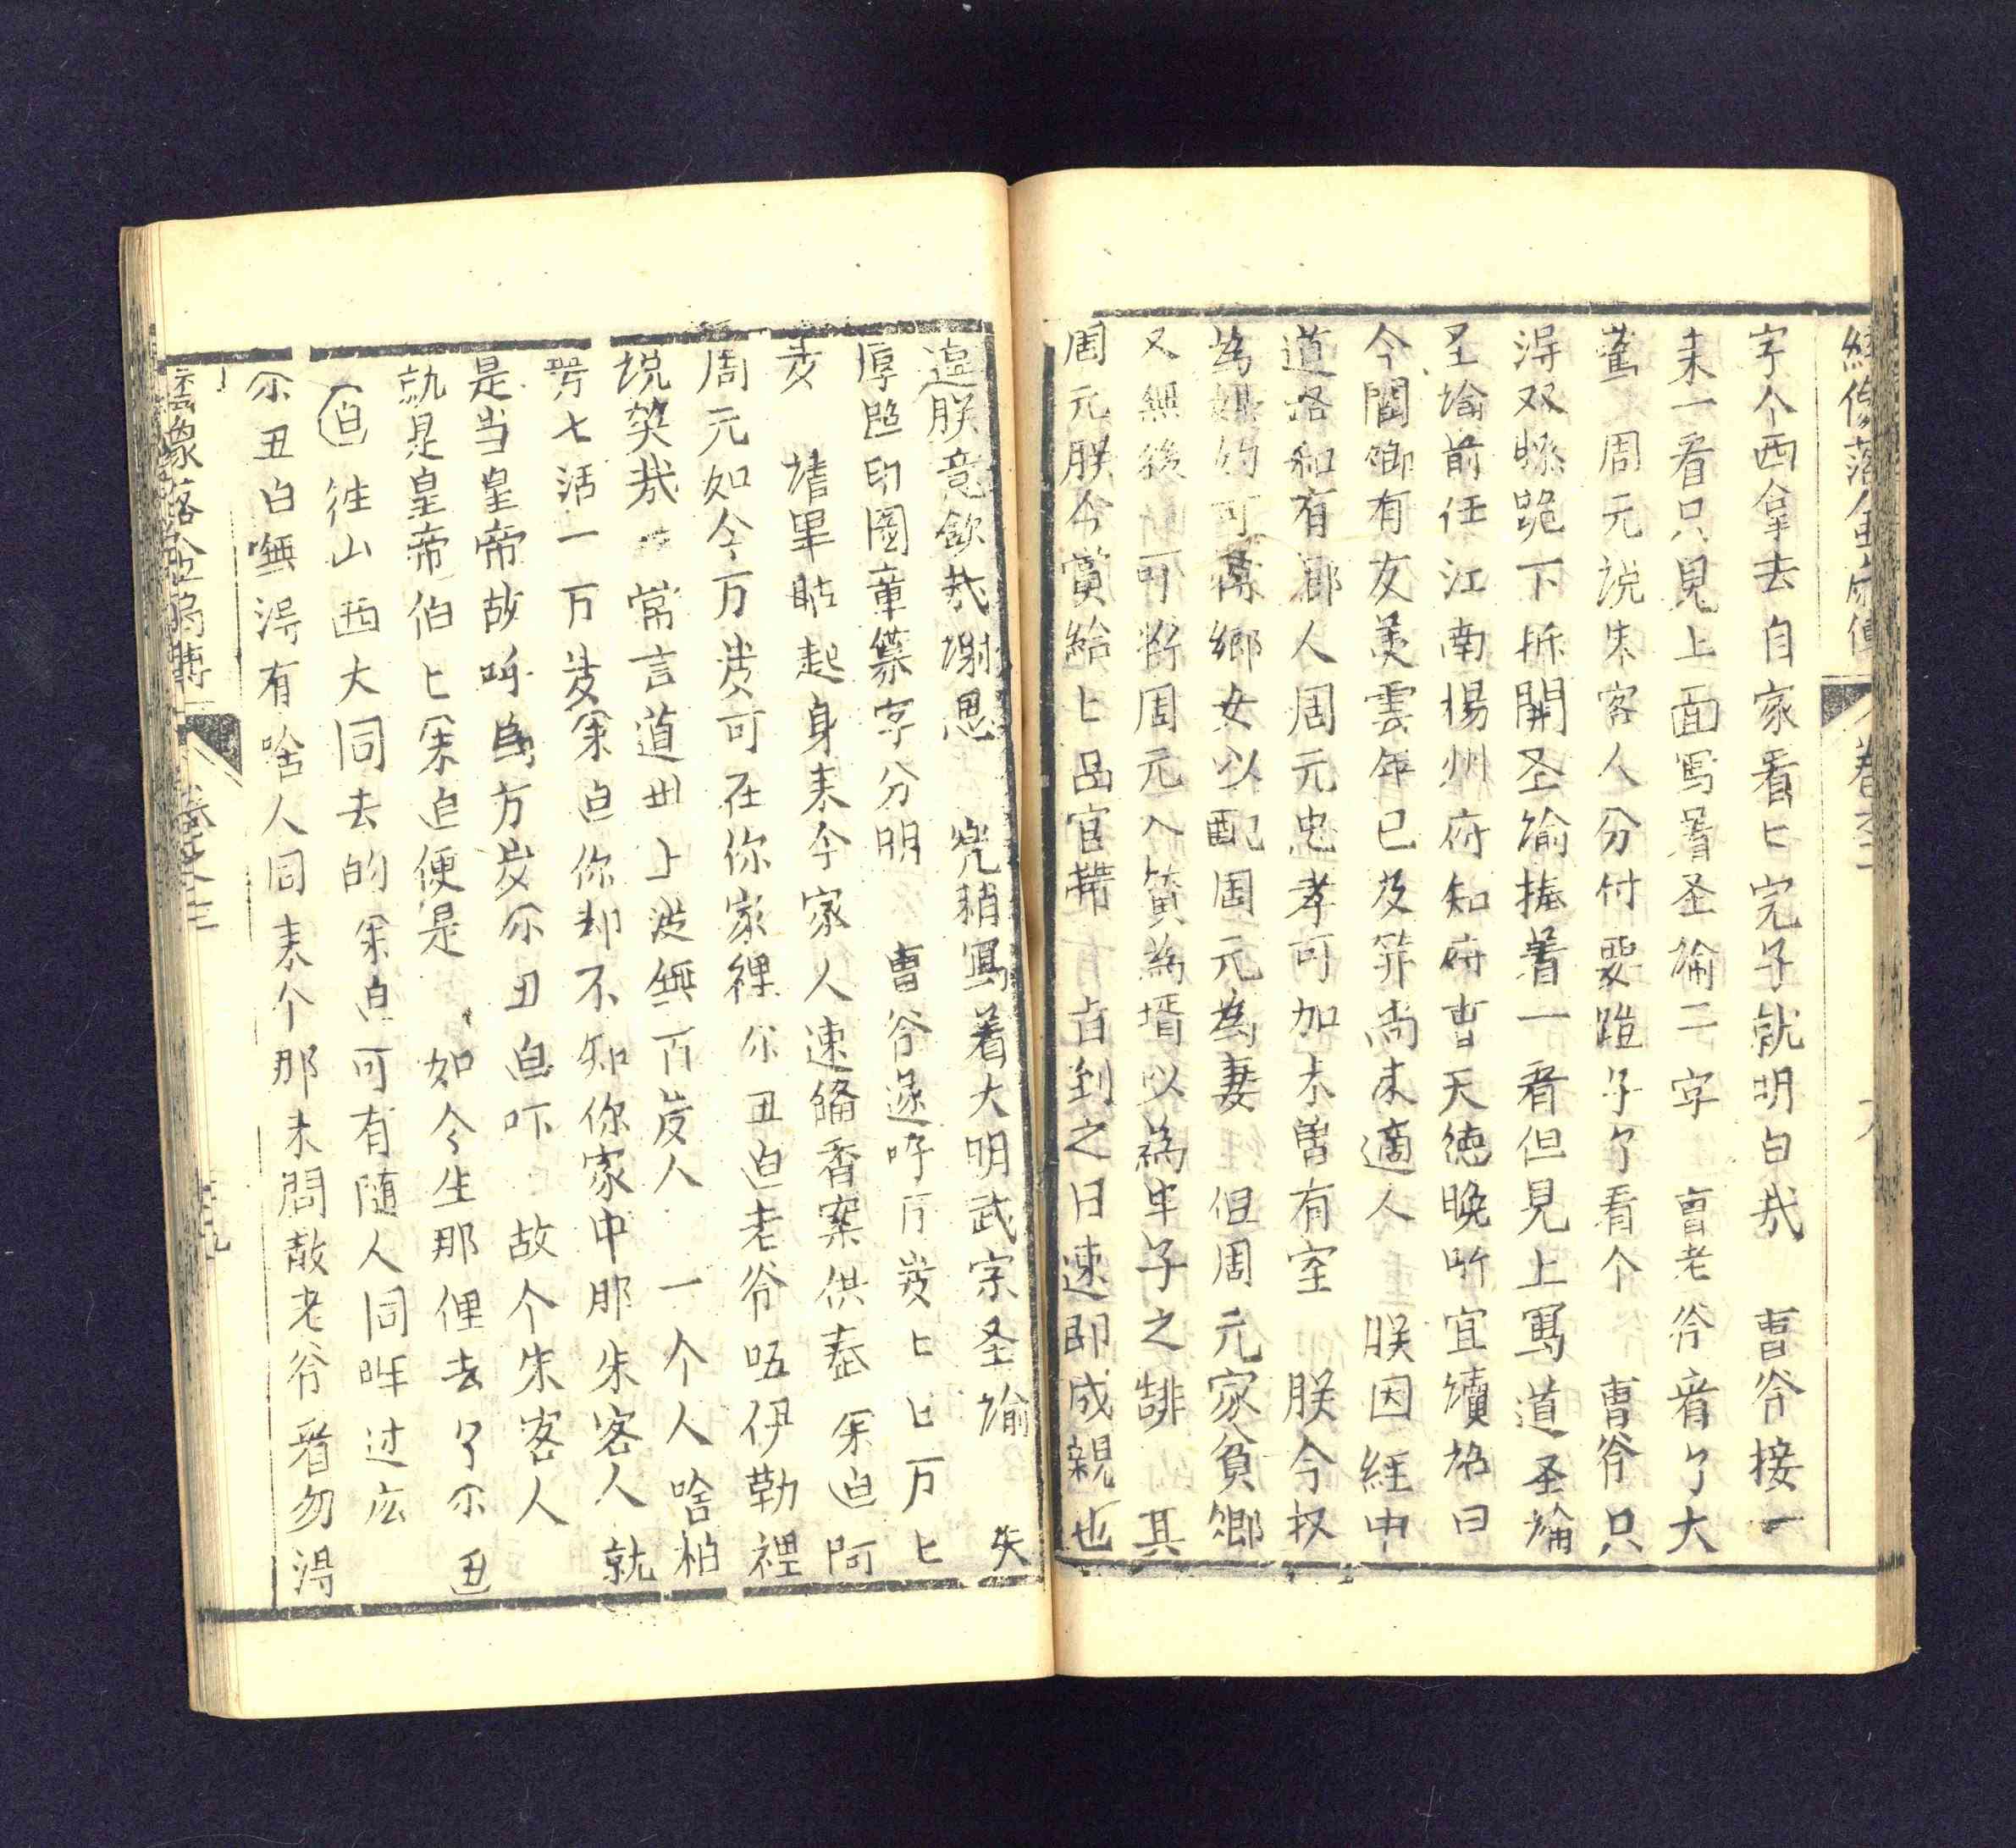 字个西拿去自家看匕完子就明白哉 曹爷接一
未一看只見上面写着圣諭二字 曹老爷看了大
驚 周元说朱客人分付要跪子了看个 曹爷只
淂双膝跪下拆開圣諭捧着一看但見上寫道圣諭
圣諭前任江南揚州府知府曹天德晚听宜讀詔曰
今聞卿有女美雲年已及笄尚未適人 朕因經中
道路和有鄰人周元忠孝可加未曾有室 朕今权
為媒妁可篤鄉女以配周元為妻 但周元家貧卿
又無後 可將周元入簧為壻以為半子之誹 其
周元朕今賞給七品官帶 旨到之日速即成親也
違朕意欽哉謝恩 兜稍寫着大明武宗圣諭 失
厚脂印圖章篆字分明 曹爷遂呼万岁匕匕万匕
岁 請畢貼起身来今家人速备香案供奉 余迫阿
周元如今万岁可在你家裡 尔丑迫老爷唔伊勒裡
说笑哉 常言道世上没無百岁人 一个人啥柏
号七活一万岁余白你却不知你家中那朱客人就
是当皇帝故呼爲方岁尔丑白吓 故个朱客人
就是皇帝伯匕余迫便是 如今生那俚去了尔丑
白往山西大同去的余白可有随人同哖过庅
尔丑白無淂有啥人同来个那未問敵老爷看勿淂